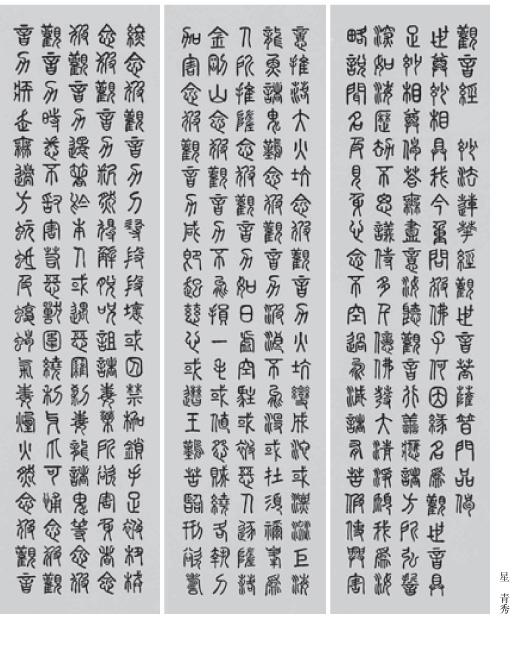 觀音經 妙法蓮華經觀世音菩薩普門品偈
世尊妙相具我今重問彼佛子何因緣名為觀世音具
足妙相尊偈答無盡意汝聽觀音行善應諸方所弘誓
深如海歷劫不思議侍多千億佛發大清淨願我為汝
略說聞名及見身心念不空過能滅諸有苦假使興害
意推落大火坑念彼觀音力火坑變成池或漂流巨海
龍魚諸鬼難念彼觀音力波浪不能沒或在須彌峯為
人所推墮念彼觀音力如日虛空住或被惡人逐墮落
金剛山念彼觀音力不能損一毛或值怨賊繞各執刀
加害念彼觀音力咸即起慈心或遭王難苦臨刑欲壽
終念彼觀音力刀尋段段壞或囚禁枷鎖手足被杻械
念彼觀音力釋然得解脫呪詛諸毒藥所欲害身者念
彼觀音力還著於本人或遇惡羅剎毒龍諸鬼等念彼
觀音力時悉不敢害若惡獸圍繞利牙爪可怖念彼觀
音力疾走無邊方蚖蛇及蝮蠍氣毒煙火然念彼觀音
星 青秀